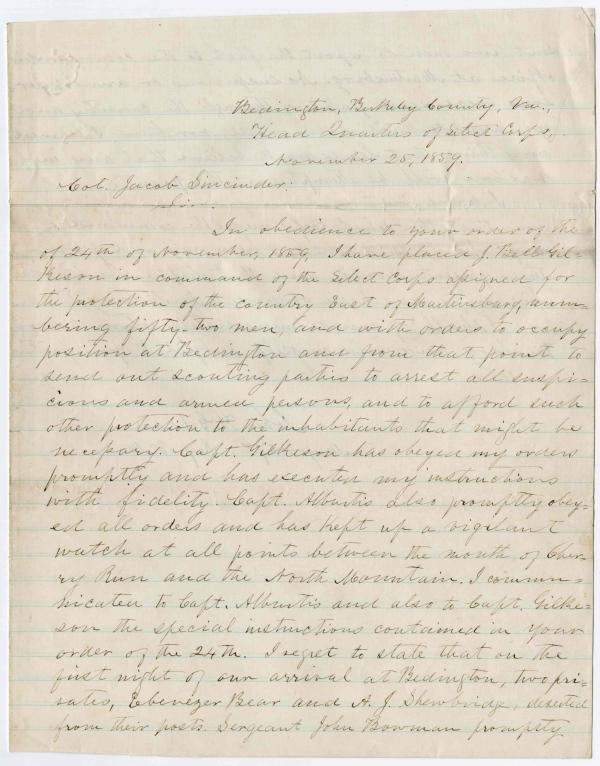 Bedington, Berkeley County, Va.,
Head Quarters of Select Corps,
November 25, 1859.
Col. Jacob Sincinder:
Sir:
In obedience to your order of the
of 24th of November, 1859, I have placed J. Bell Gil-
keson in command of the Select Corps assigned for
the protection of the country East of Martinsburg, num-
bering fifty-two men, and with orders to occupy
position at Bedington and from that point to
send out scouting parties to arrest all suspi-
cious and armed persons, and to afford such
other protection to the inhabitants that might be
necessary. Capt. Gilkeson has obeyed my orders
promptly and has executed my instructions
with fidelity. Capt. Alburtis also promptly obey-
ed all orders and has kept up a vigilant
watch at all points between the mouth of Cher-
ry Run and the North Mountain. I commu-
nicated to Capt. Alburtis and also to Capt. Gilke-
son the special instructions contained in your
order of the 24th. I regret to state that on the
first night of our arrival at Bedington, two pri-
vates, Ebenezer Bear and A. J. Shewbridge, deserted
from their posts. Sergeant John Bowman promptly